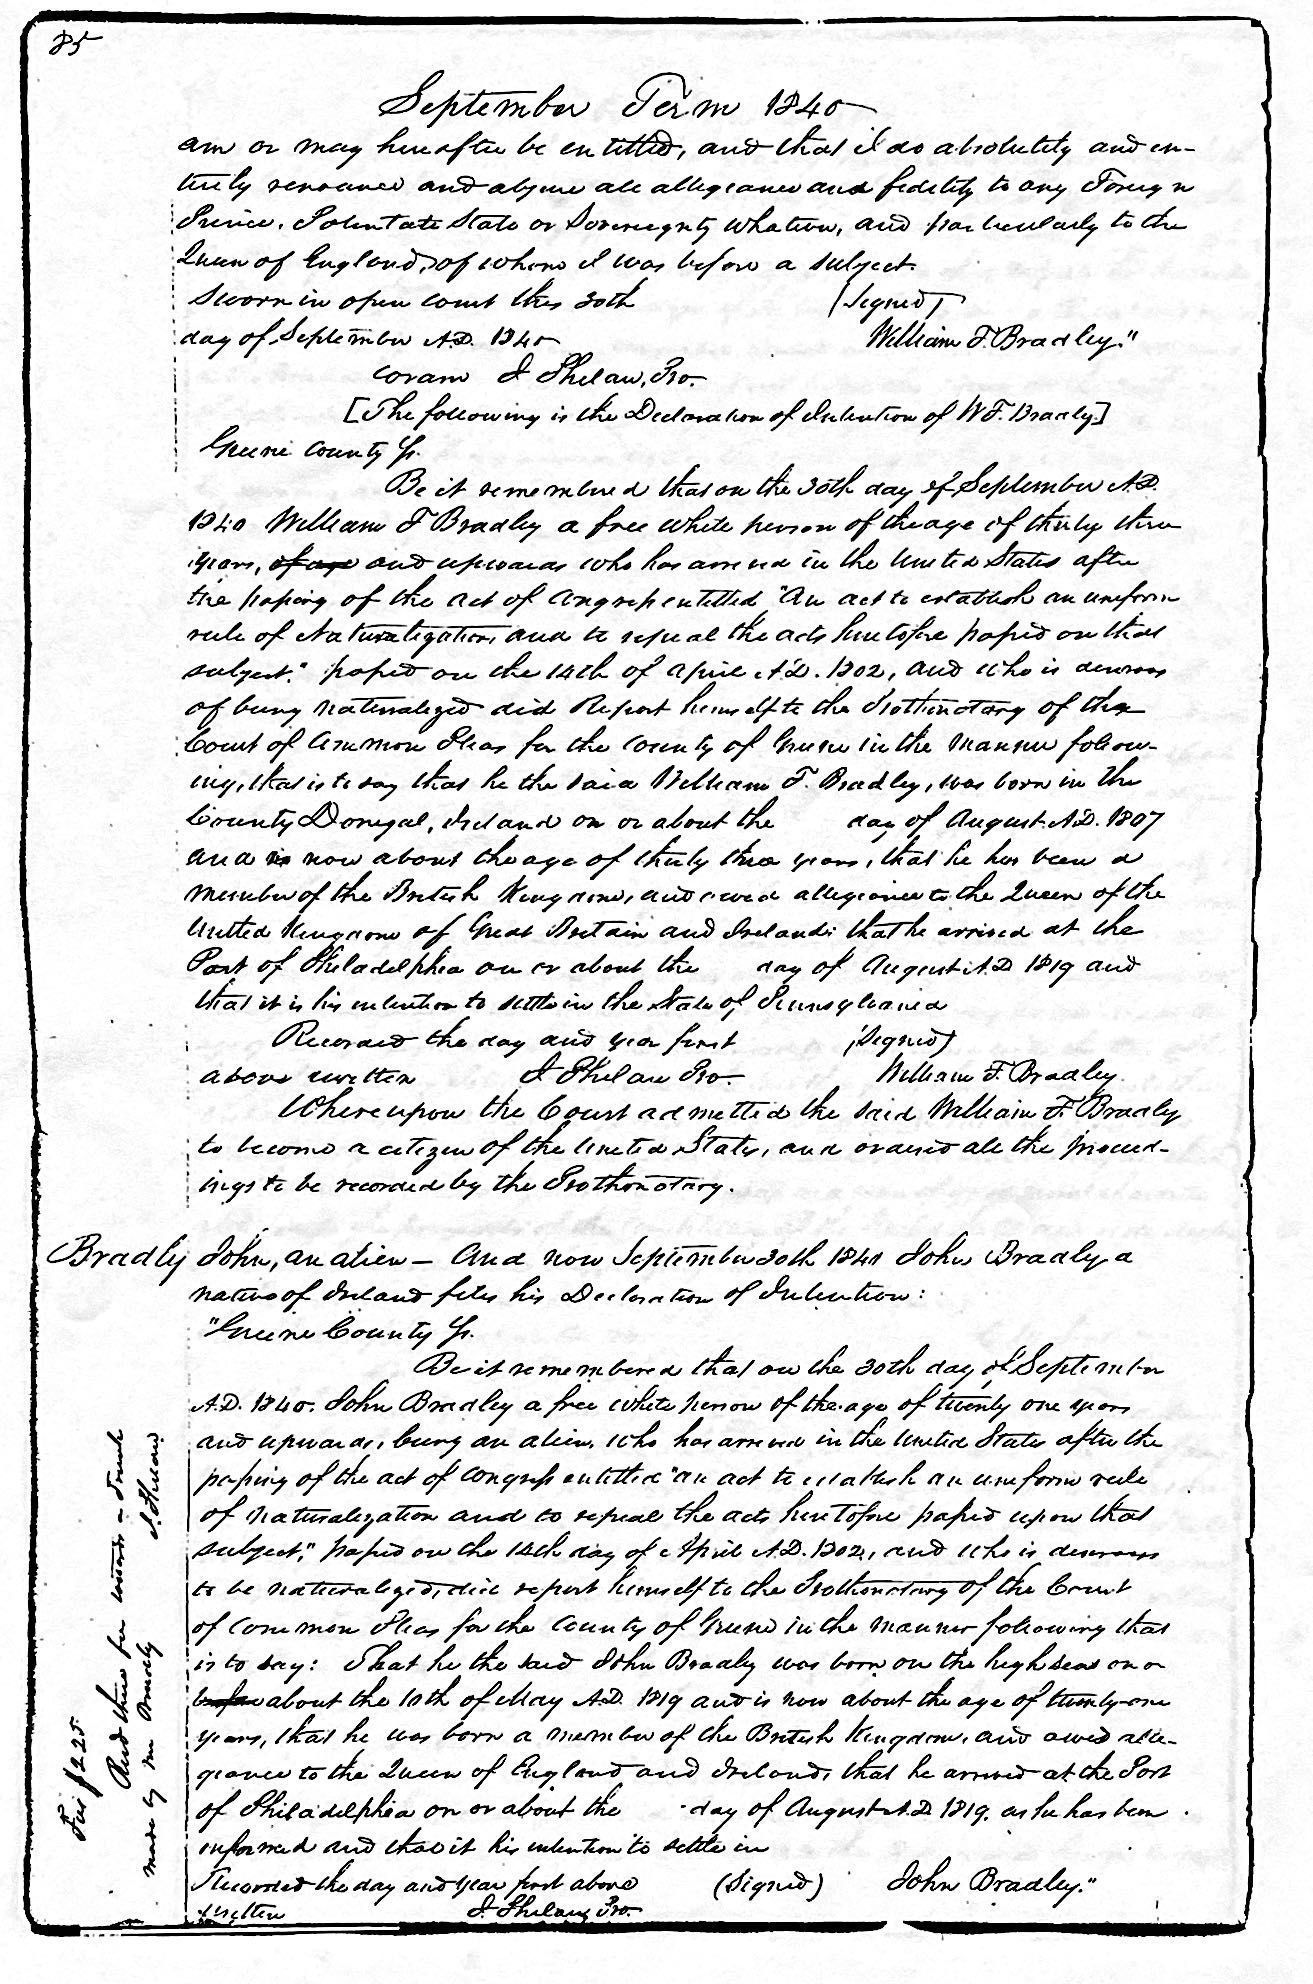 85
September Term 1840
am or may hereafter be entitled, and that I do absolutely and en-
tirely renounce and abjure all allegiance and fidelity to any Foreign
Prince, Potentate State or Sovereignty whatever, and particularly to the
Queen of England, of whom I was before a subject.
Sworn in open court this 30th (Signed)
day of September A.D. 1840 William F. Bradley."
coram J Phelan, Pro.
[The following is the Declaration of Intention of W F. Bradly]
Greene County Ss.
Be it remembered that on the 30th day of September A.D.
1840 William F Bradley a free white person of the age of thirty three
years, of age and upwards who has arrived in the United States after
the passing of the act of Congress entitled "An act to establish an uniform
rule of Naturalization, and to repeal the acts heretofore passed on that
subject." passed on the 14th of April A.D. 1802, and who is desirous
of being naturalized did Report himself to the Prothonotary of the
Court of Common Pleas for the County of Greene in the manner follow-
ing, that is to say that he the said William F. Bradley, was born in the
County Donegal, Ireland on or about the day of August A.D. 1807
and is now about the age of thirty three years, that he has been a
member of the British Kingdom, and owed allegiance to the Queen of the
United Kingdom of Great Britain and Ireland: that he arrived at the
Port of Philadelphia on or about the day of August A.D 1819 and
that it is his intention to settle in the State of Pennsylvania
Recorded the day and year first (Signed)
above written J Phelan Pro. William F. Bradley.
Whereupon the Court admitted the said William F. Bradley
to become a citizen of the United States, and ordered all the proceed-
ings to be recorded by the Prothonotary.
Bradly John, an alien – And now September 30th 1840 John Bradley a
native of Ireland files his Declaration of Intention:
"Greene County Ss.
Be it remembered that on the 30th day of September
A.D. 1840. John Bradley a free white person of the age of twenty one years
and upwards, being an alien, who has arrived in the United States after the
passing of the act of Congress entitled "an act to establish an uniform rule
of naturalization and to repeal the acts heretofore passed upon that
subject," passed on the 14th day of April A.D. 1802, and who is desirous
to be naturalized, did report himself to the Prothonotary of the Court
of Common Pleas for the County of Greene in the manner following that
is to say: That he the said John Bradly was born on the high seas on or
before about the 10th of May A.D. 1819 and is now about the age of twenty-one
years, that he was born a member of the British Kingdom, and owed alle-
giance to the Queen of England and Ireland, that he arrived at the Port
of Philadelphia on or about the day of August A.D 1819. as he has been
informed and that it his intention to settle in
Recorded the day and year first above (Signed) John Bradley."
written J. Phelan, Pro.
Fees $2.25
And three fee made by me Bradly
J. Phelan